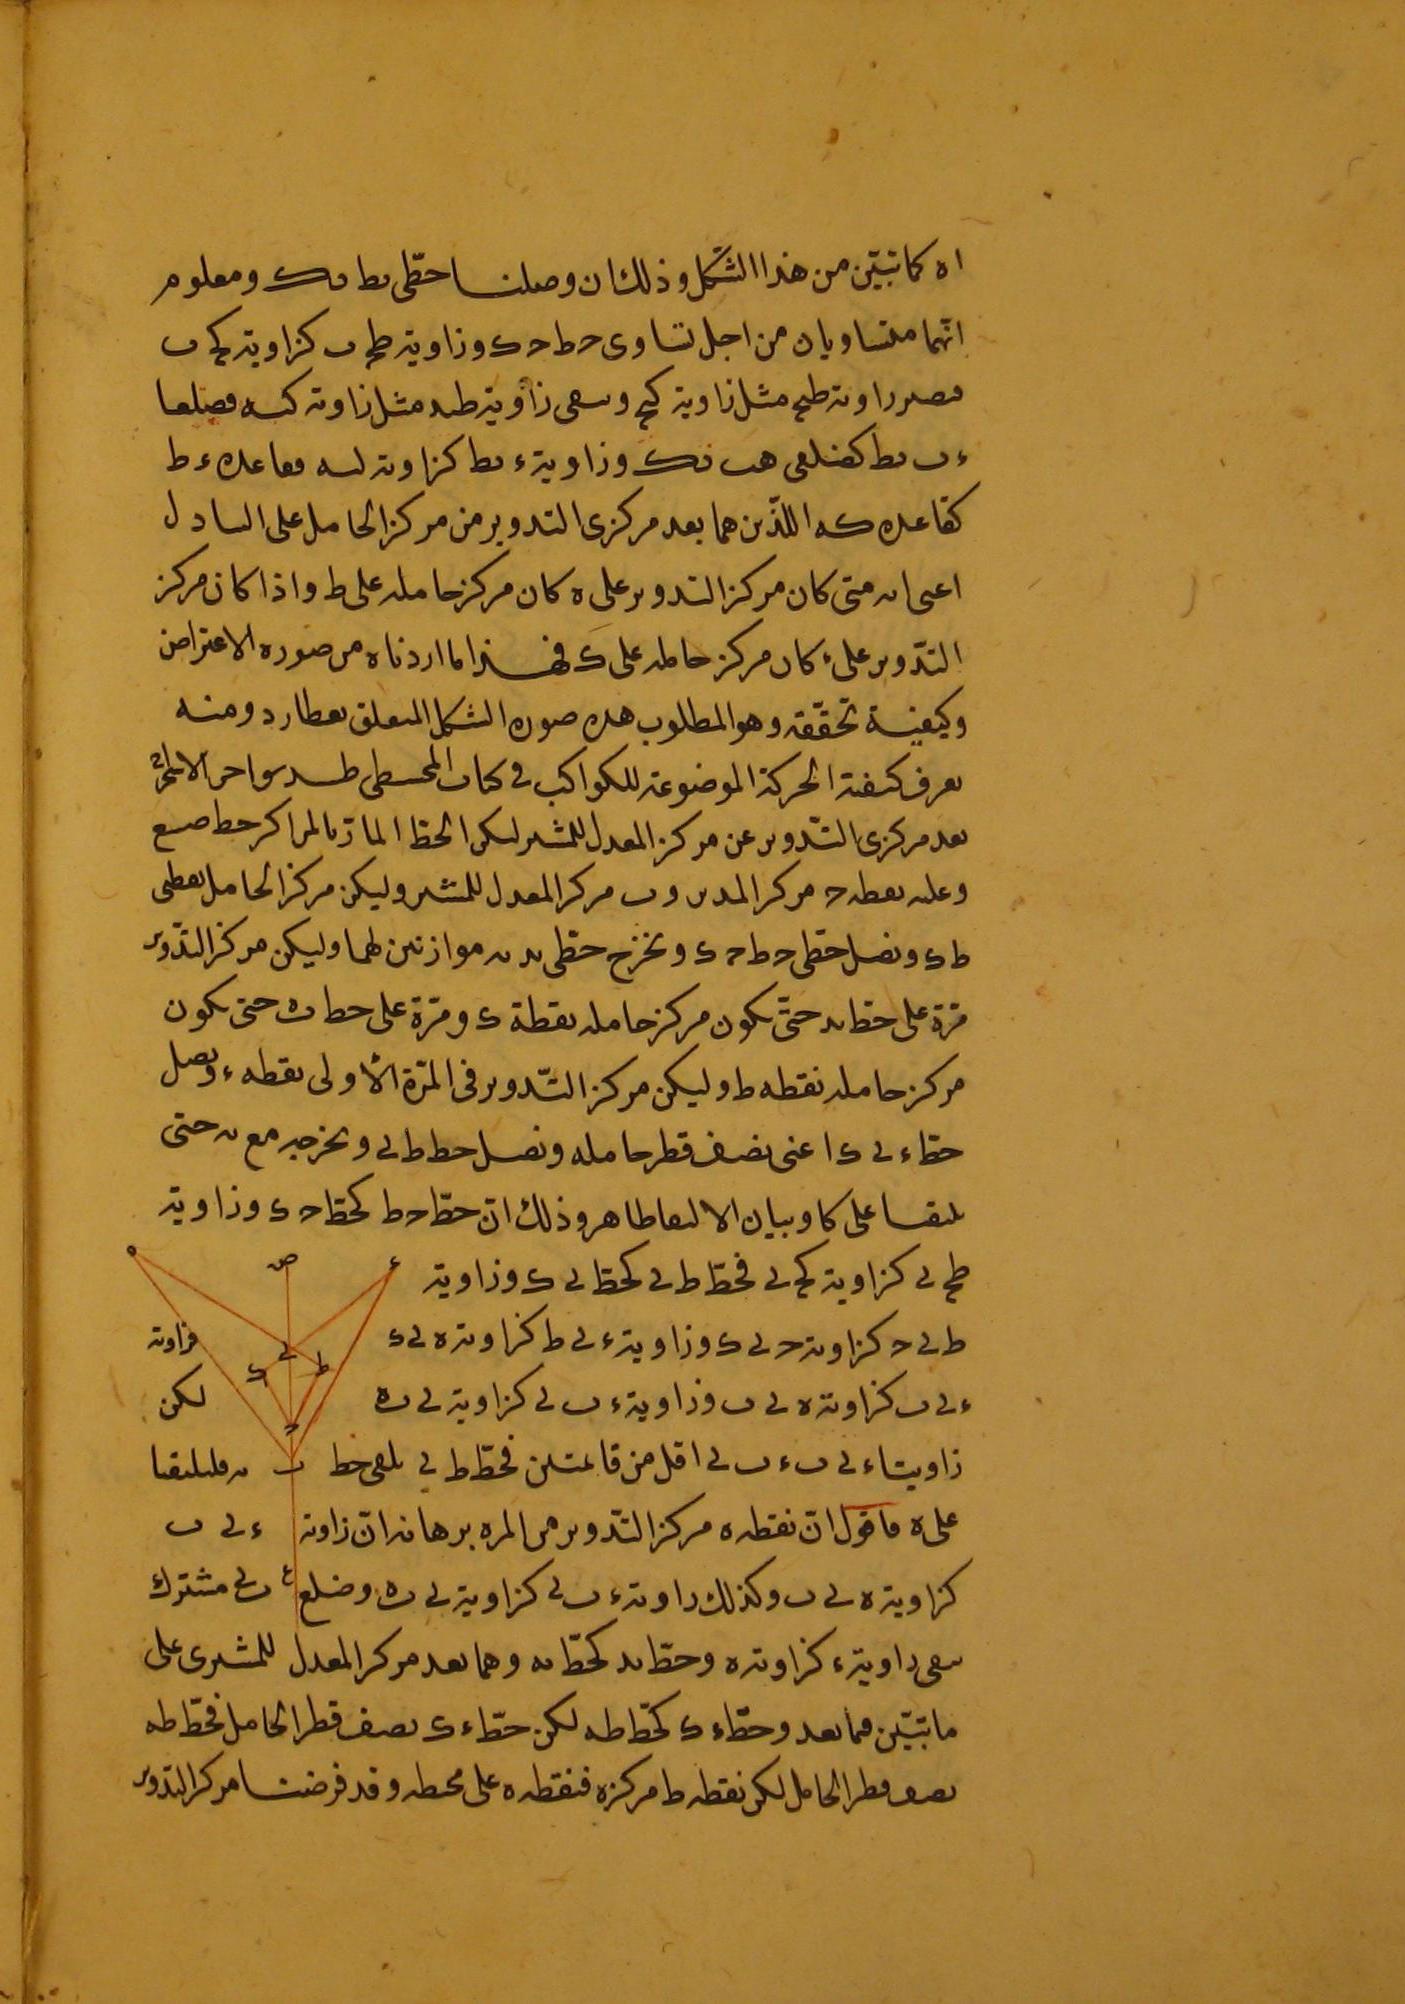 اه كما تبيّن من هذا الشكل وذلك ان وصلنا خطّى ٮط ٮک ومعلوم
انّهما متساويان من اجل تساوى حط حک وزاوية طح ٮ كزاوية كح ٮ
زاوية طٮح مثل زاوية كٮح وٮٮقى زاوية طٮد مثل زاوية كٮه فضلعا
ء ٮ ٮط كضلعى هٮ ٮک وزاوية ء ٮط كزاوية فقاعده ء ط
كقاعده كه اللذين هما بعد مركزى التدوير من مركز الحامل على الٮادل
اعنى انه متى كان مركز التدوير على ه كان مركز حامله على ط واذا كان مركز
التدوير على ء كان مركز حامله على ک فهذا ما اردناه من صورة الاعتراض
وكيفية تحقّقه وهو المطلوب هذه صورة الشكل المتعلق بعطارد ومنه
يعرف كيفية الحركة الموضوعة للكواكب فى كتاب المجسطى
بعد مركزى التدوير عن مركز المعدل للمشترى ليكن الخط المارّ بالمراكز خط صع
وعليه نقطه ح مركز المدير و ٮ مركز المعدل للمشترى وليكن مركز الحامل نقطتى
ط ک ونصل خطى حط حک ونخرج خطى ٮد ٮه موازيين لهما وليكن مركز التدوير
مرّة على خط ٮد حتى يكون مركز حامله نقطة ک ومرّة على خط ٮه حتى يكون
مركز حامله نقطه ط وليكن مركز التّدوير فى المرّة الاولى نقطه ء ونصل
خط ء ل ک اعنى نصف قطر حامله ونصل خط ط ل ونخرجه مع ٮه حتى
يلتقيا على كا وبيان الالتقا ظاهر وذلك انّ خط حط كخط حک وزاوية
طح ل كزاوية كح ل فخط ط ل كخط ل ک وزاوية
ط ل ح كزاوية ح ل ک وزاوية ء ل ط كزاوية ه ل ک فزاوية
ء ل ٮ كزاوية ه ل ٮ وزاوية ء ٮ ل كزاوية ل ٮ ه لكن
زاويتا ء ل ٮ ء ٮ ل اقل من قائمتين فخط ط ل يلقى خط ٮه فليلتقيا
على ه فاقول انّ نقطه ه مركز التدوير من المره برهانه انّ زاوية ء ل ٮ
كزاوية ه ل ٮ وكذلك زاوية ء ٮ ل كزاوية ل ٮ ه وضلع ٮ ل مشترك
ٮٮقى زاوية ء كزاوية ه وخط ٮد كخط ٮه وهما بعد مركز المعدل للمشترى على
ما تبيّن فيما بعد وخط ء ک كخط طه لكن خط ء ک نصف قطر الحامل فخط طه
نصف قطر الحامل لكن نقطه ط مركزه فنقطه ه على محيطه وقد فرضنا مركز التدوير
ه
ص
ء
ل
ک
ط
ح
ٮ
ع